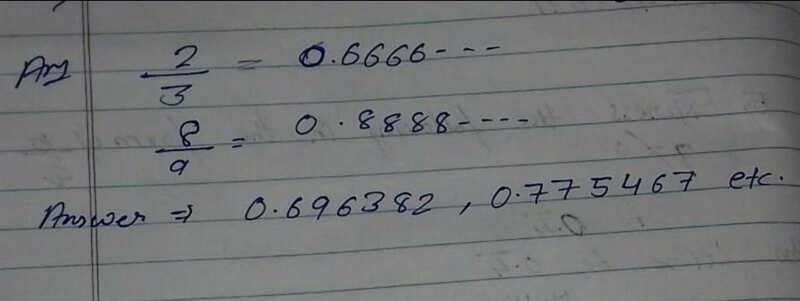 Ans 2/3 = 0.6666---
8/9 = 0.8888----
Answer ⇒ 0.696382, 0.775467 etc.